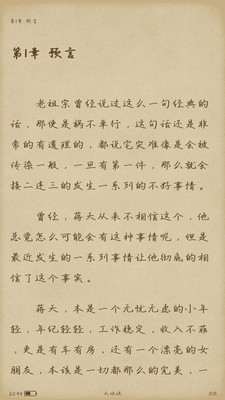 第1章 预言
第1章 预言
老祖宗曾经说过这么一句经典的
话，那便是祸不单行，这句话还是非
常的有道理的，都说它灾难像是会被
传染一般，一旦有第一件，那么就会
接二连三的发生一系列的不好事情。
曾经，蒋天从来不相信这个，他
总觉怎么可能会有这种事情呢，但是
最近发生的一系列事情让他彻底的相
信了这个事实。
蒋天，本是一个无忧无虑的小年
轻，年纪轻轻，工作稳定，收入不菲
，更是有车有房，还有一个漂亮的女
朋友，本该是一切都那么的完美，一